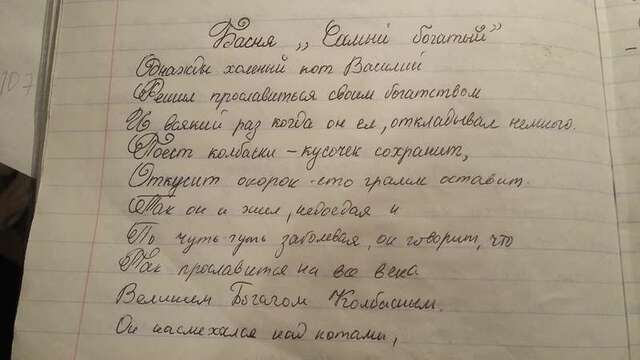 Басня „Самый богатый"
Однажды холеный кот Василий
Решил прославиться своим богатством
И всякий раз когда он ел, откладывал немного.
Поест колбаски – кусочек сохранит,
Откусит окорок – сто грамм оставит.
Так он и жил, недоедая и
По чуть-чуть заболевая, он говорит, что
Так прославится на все века
Великим Богачом Колбасным.
Он насмехался над котами,